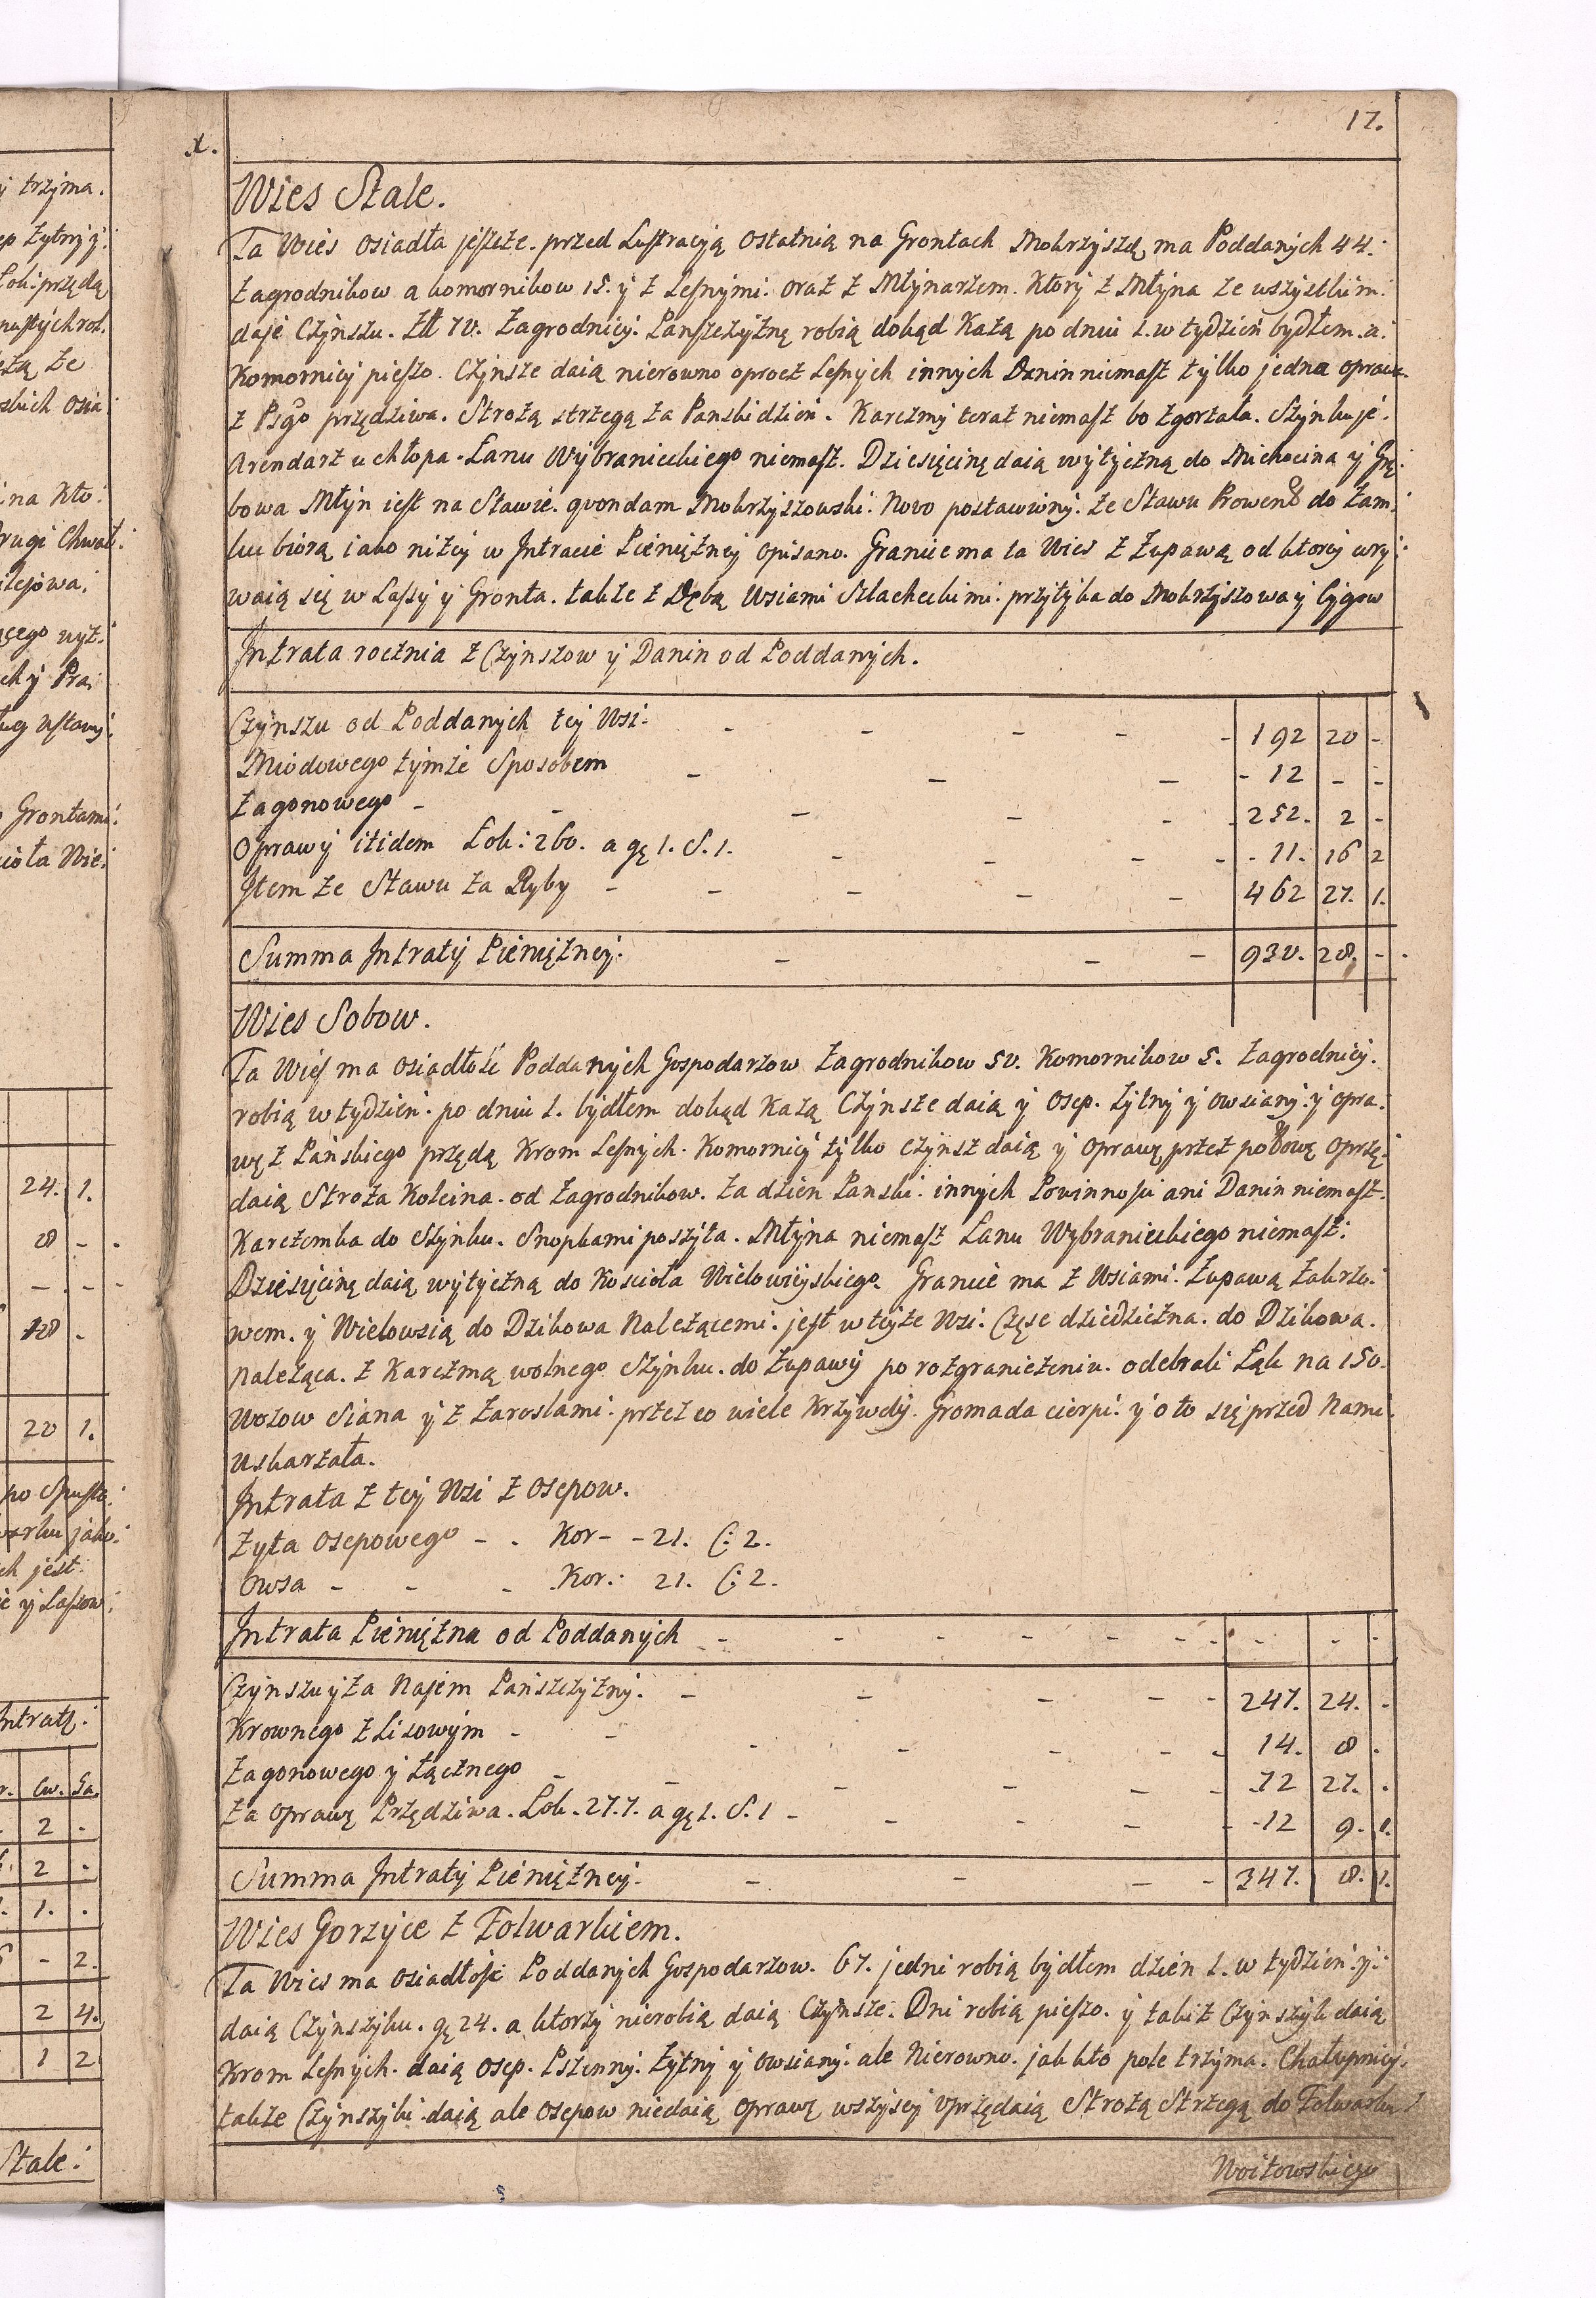 x.
17.
Wies Stale.
Ta Wies osiadła jeszcze. przed Lustracyją ostatnią na Grontach Mokrzyszą, ma Poddanych 44.
Zagrodnikow a komornikow 15. y z Leśnymi. oraz z Młynarzem. Ktory z Młyna ze wszystkim.
daje Czynszu. Zł 70. Zagrodnicy. Panszczyznę robią dokąd Każą po dniu 1. w tydzień bydłem. a.
Komornicy pieszo. Czynsze daią nierowno oprocz Leśnych innych Danin niemasz tylko jedna opraw.
z Psgo przędziwa. Strożą strzegą za Panski dzień. Karczmy teraz niemasz bo zgorzała. Szynkuje.
Arendarz u chłopa. Łanu Wybranieckiego niemasz. Dziesięcinę daią wytyczną do Michocina y Grę.
bowa Młyn iest na Stawie. quondam Mokrzyszowski. Novo postawiony. ze Stawu Prowent do Zam.
ku biorą iako niżey w Intracie Pieniężney opisano. Granice ma ta Wies z Żupawą od ktorey wry.
waią się w Lassy y Gronta. także z Dębą Wsiami Szlacheckimi. przytyka do Mokrzyszowa y Cygow
Intrata rocznia z Czynszow y Danin od Poddanych.
Czynszu od Poddanych tey Wsi. - - - - - 192 20 -
Miodowego tymże Sposobem - - - - 12 - -
Zagonowego - - - - - - 252. 2 -
Oprawy itidem Łok: 260. a gę 1. S. 1. - - - - - 11. 16 2
Item ze Stawu za Ryby - - - - - 462 27. 1.
Summa Intraty Pieniężney. - - - 930. 28. -
Wies Sobow.
Ta Wieś ma osiadłość Poddanych Gospodarzow Zagrodnikow 50. Komornikow 5. Zagrodnicy.
robią w tydzień. po dniu 1. bydłem dokąd Każą Czynsze daią y Osep. Żytny y owsiany. y opra.
wę z Pańskiego przędą Krom Leśnych. Komornicy tylko czynsz daią y Oprawę przez połowę oprzę.
daią Stroża Koleina. od Zagrodnikow. za dzień Panski. innych Powinności ani Danin niemasz.
Karczemka do Szynku. Snopkami poszyta. Młyna niemasz Łanu Wybranieckiego niemasz.
Dziesięcinę daią wytyczną do Kościoła Wielowieyskiego. Granice ma z Wsiami. Żupawą Zakrzo.
wem. y Wielowsią do Dzikowa Należącemi. jest w teyże Wsi. Częsc dziedziczna. do Dzikowa.
należąca. z Karczmą wolnego Szynku. do Żupawy po rozgraniczeniu. odebrali Łąk na 150.
Wozow Siana y z Zaroslami. przez co wiele Krzywdy. Gromada cierpi. y o to się przed Nami.
Uskarzała.
Intrata z tey Wsi z Osepow.
Żyta Osepowego - . Kor - - 21. C: 2.
Owsa - - - Kor.: 21. C: 2.
Intrata Pieniężna od Poddanych - - - - - - - -
Czynszu y za Najem Panszczyzny. - - - - - 247. 24. -
Krownego z Lisowym - - - - - - - 14. 8 .
Zagonowego y Łącznego - - - - - - 72 27. .
Za Oprawę Przędziwa. Łok. 277. a gę 1. S. 1 - - - - - 12 9. 1.
Summa Intraty Pieniężney. - - - - 347. 8. 1.
Wies Gorzyce z Folwarkiem.
Ta Wies ma osiadłość Poddanych Gospodarzow. 67. jedni robią bydłem dzień 1. w tydzień. y.
daią Czynszyku. gę 24. a ktorzy nierobią daią Czynsze. Dni robią pieszo. y takiż Czynszyk daią
Krom Leśnych. daią osep. Pszenny. Żytny y Owsiany. ale Nierowno. jak kto pole trzyma. Chałupnicy.
także Czynszyki daią ale osepow niedaią Oprawę wszyscy Uprzędaią Strożą Strzegą do Folwarku
Woitowskiego